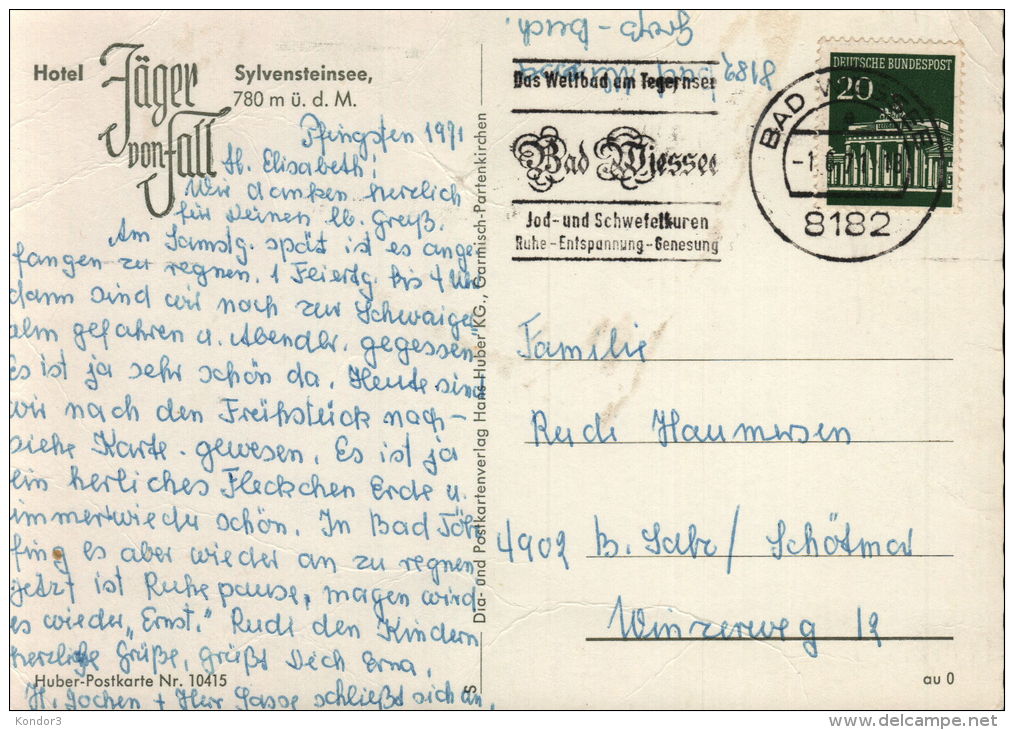 Hotel Jäger von Fall Sylvensteinsee,
780 m ü. d. M.
Pfingsten 1971
Lb. Elisabeth,
Wir danken herzlich
für Deinen lb. Greuß.
Am Samstg. spät ist es ange
fangen zu regnen. 1 Feiertg. bis 4 Uhr
dann sind wir noch zur Schwaiger
alm gefahren u. Abendbr. gegessen
Es ist ja sehr schön da. Heute sind
wir nach den Freühstück nach-
siehe Karte gewesen. Es ist ja
ein herliches Fleckchen Erde u.
immerwieder schön. In Bad Tölz
fing es aber wieder an zu regnen
jetzt ist Ruhepause, magen wird
es wieder „Ernst." Rudi den Kindern
herzliche Grüße, grüßt Dich Erna.
H. Jochen + Herr Sasse schließt sich an.
Huber-Postkarte Nr. 10415
S Dia- und Postkartenverlag Hans Huber KG., Garmisch-Partenkirchen
8182 Bad Wiessee
Das Weltbad am Tegernsee
Bad Wiessee
Jod- und Schwefelkuren
Ruhe-Entspannung-Genesung
BAD WIESSEE
8182
DEUTSCHE BUNDESPOST
20
Familie
Rudi Haumersen
4902 B. Salz/ Schötmar
Winzerweg 12
au 0
Kondor3
delcampe.net